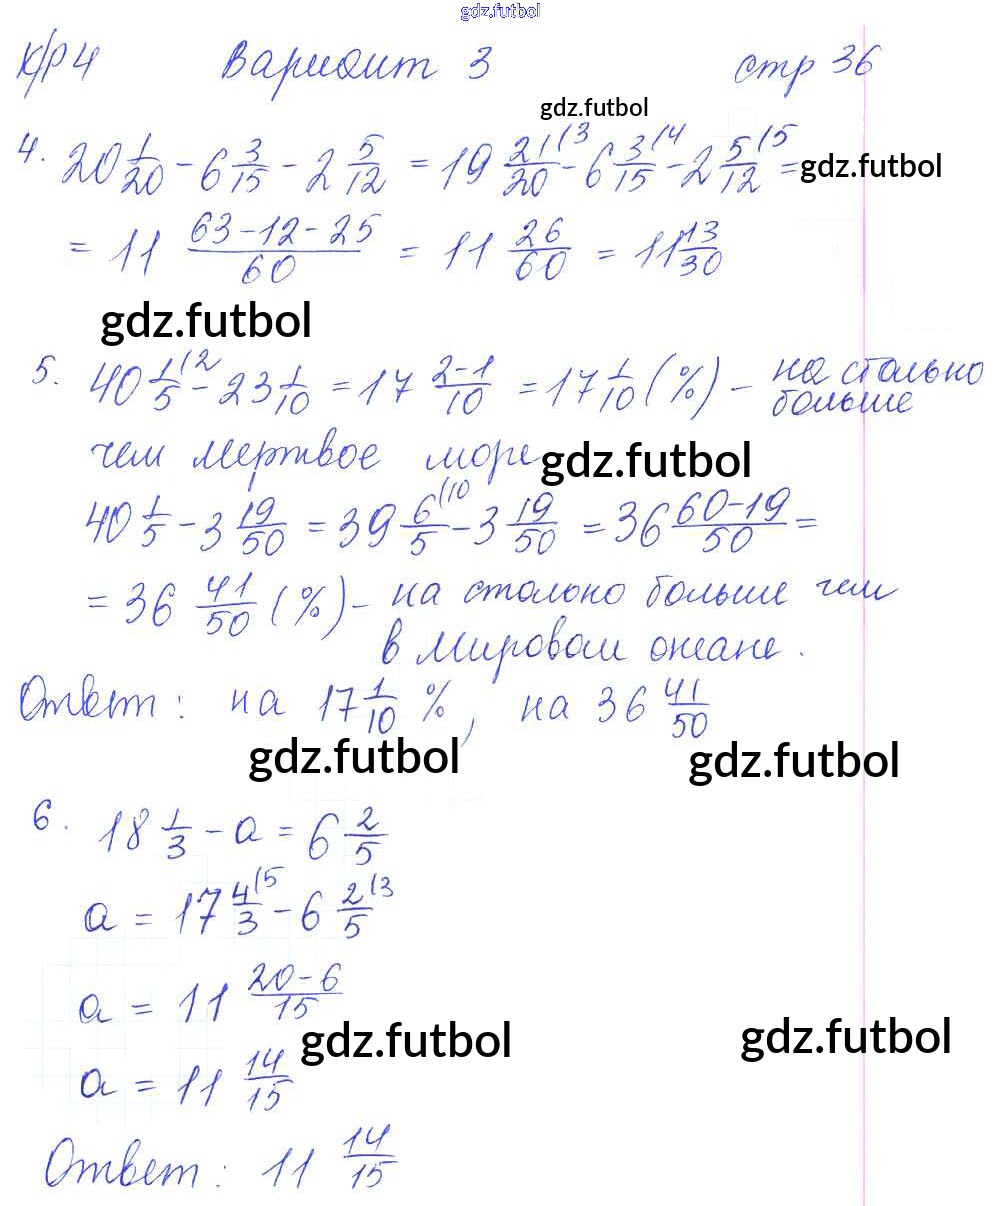 gdz.futbol
К/Р 4 Вариант 3 стр 36
gdz.futbol
4. 20 1/20 - 6 3/15 - 2 5/12 = 19 21/20 (3 - 6 3/15 (4 - 2 5/12 (5 =
gdz.futbol
= 11 (63-12-25)/60 = 11 26/60 = 11 13/30
gdz.futbol
5. 40 1/5 (2 - 23 1/10 = 17 (2-1)/10 = 17 1/10 (%) - на столько
больше
чем мертвое море
gdz.futbol
40 1/5 - 3 19/50 = 39 6/5 (10 - 3 19/50 = 36 (60-19)/50 =
= 36 41/50 (%) - на столько больше чем
в мировом океане.
Ответ: на 17 1/10 %, на 36 41/50
gdz.futbol gdz.futbol
6. 18 1/3 - а = 6 2/5
а = 17 4/3 (5 - 6 2/5 (3
а = 11 (20-6)/15
gdz.futbol gdz.futbol
а = 11 14/15
Ответ: 11 14/15